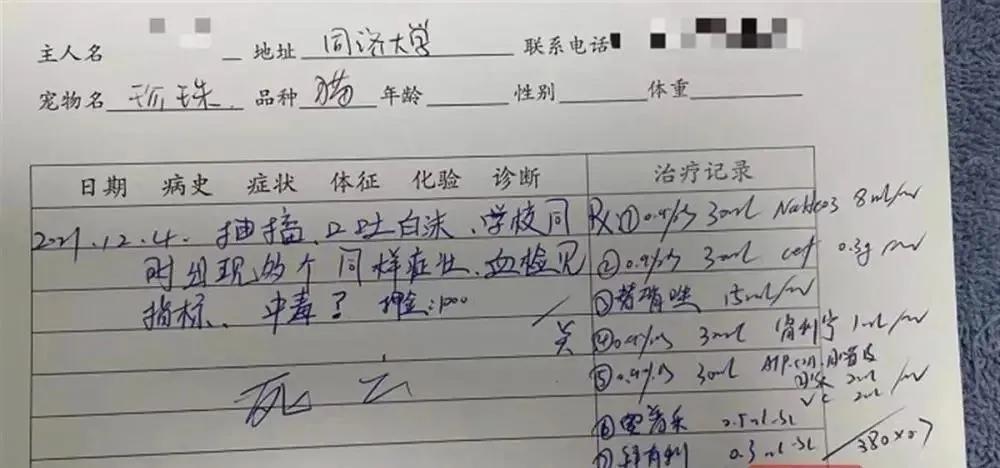 主人名 地址 同济大学 联系电话
宠物名 珍珠 品种 猫 年龄 性别 体重
日期 病史 症状 体征 化验 诊断 治疗记录
2021.12.4. 抽搐、口吐白沫、学校同
时出现 个同样症状、血检见
指标、中毒? 押金:1000
死亡
Rx ① 0.9% NS 30ml NaHCO3 8ml/iv
② 0.9% NS 30ml cef 0.3g iv
③ 替硝唑 15ml/iv
④ 0.9% NS 30ml 肾利宁 1ml/iv
⑤ 0.9% NS 30ml ATP.COA.
2ml
VC 2ml /iv
⑥ 0.5ml.sc
⑦ 0.3ml.sc
380×0.7